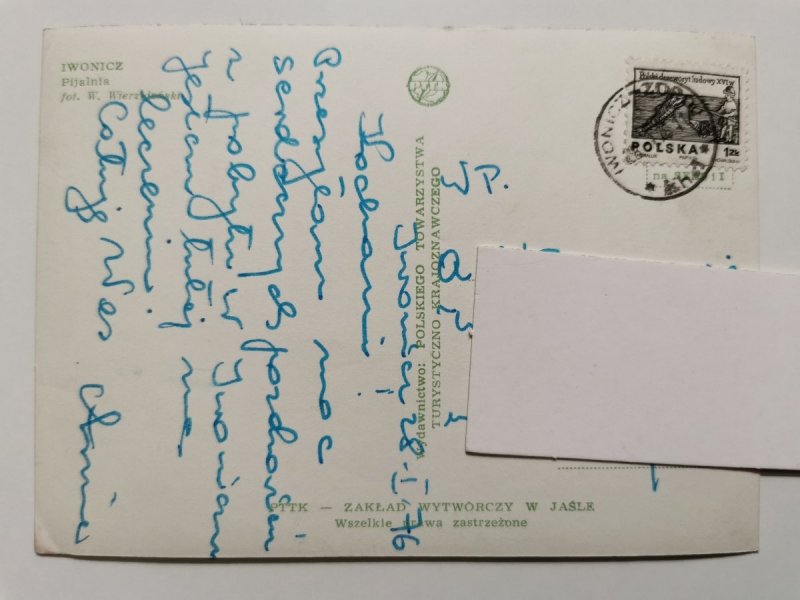 IWONICZ
Pijalnia
fot. W.
Iwonicz 28.I.76
Kochani!
Przesyłam moc
serdecznych pozdrowień
z pobytu w Iwoniczu
jestem tutaj na
leczeniu.
Całuję Was
PTTK
Wydawnictwo: POLSKIEGO TOWARZYSTWA
TURYSTYCZNO KRAJOZNAWCZEGO
PTTK — ZAKŁAD WYTWÓRCZY W JAŚLE
Wszelkie prawa zastrzeżone
Polski drzeworyt ludowy XVI w
POLSKA 1 ZŁ
IWONICZ ZDRÓJ
P.